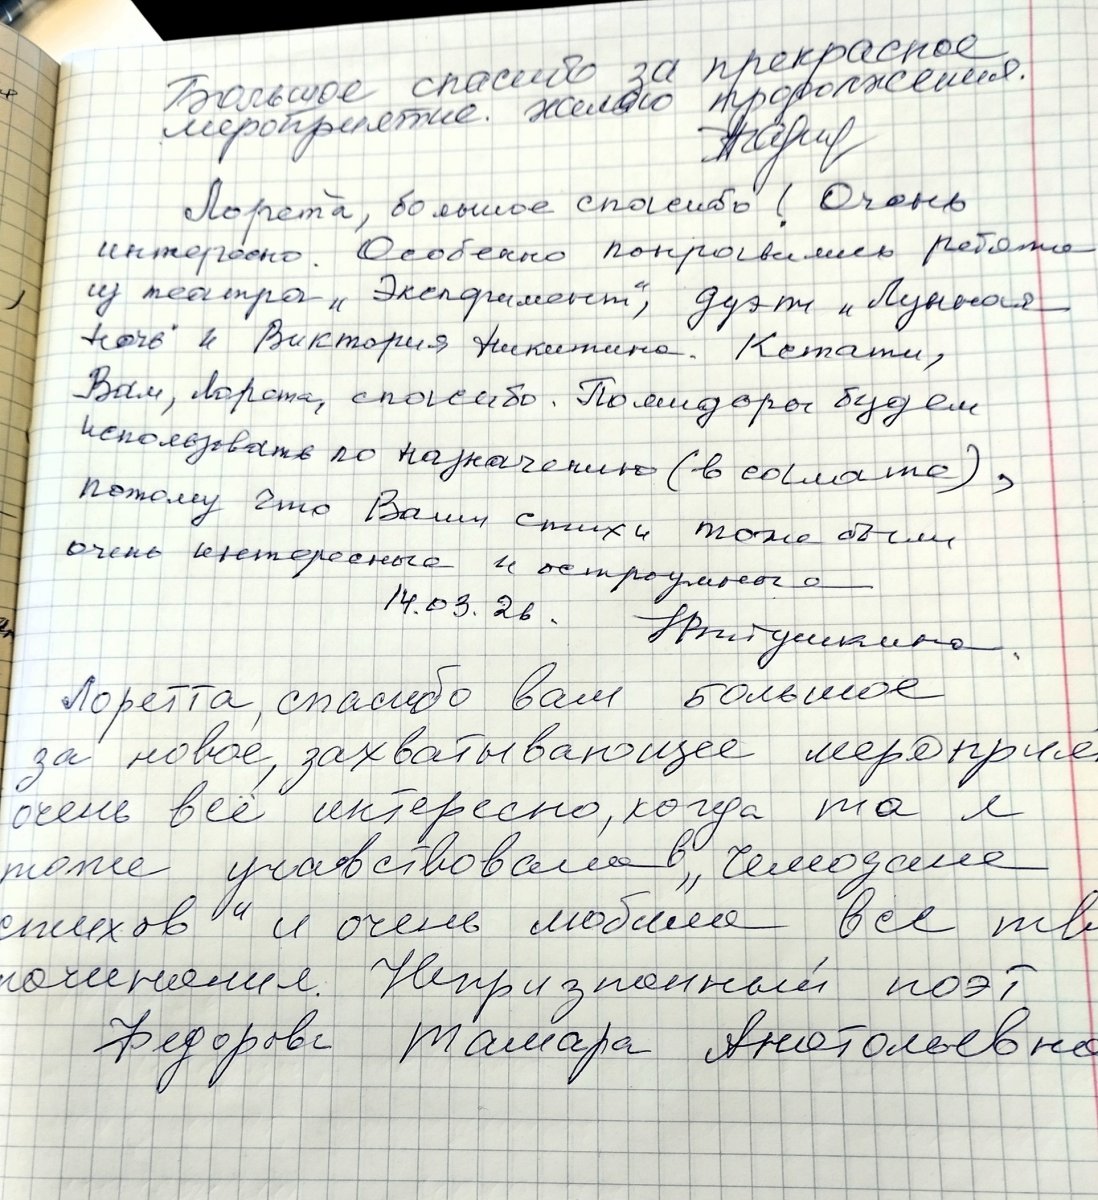 Большое спасибо за прекрасное
мероприятие. Желаю продолжения.
Лорета, большое спасибо! Очень
интересно. Особенно понравились ребята
из театра „Эксперимент“, дуэт „Лунная
ночь“ и Виктория Никитина. Кстати,
Вам, Лорета, спасибо. Помидоры будем
использовать по назначению (в салате),
потому что Ваши стихи тоже были
очень интересные и остроумные
14.03.26.
Лоретта, спасибо вам большое
за новое, захватывающее мероприя
очень всё интересно, когда та я
тоже учавствовала в „Чемодане
стихов“ и очень любила все тв
починания. Непризнанный поэт
Федорова Тамара Анатольевна